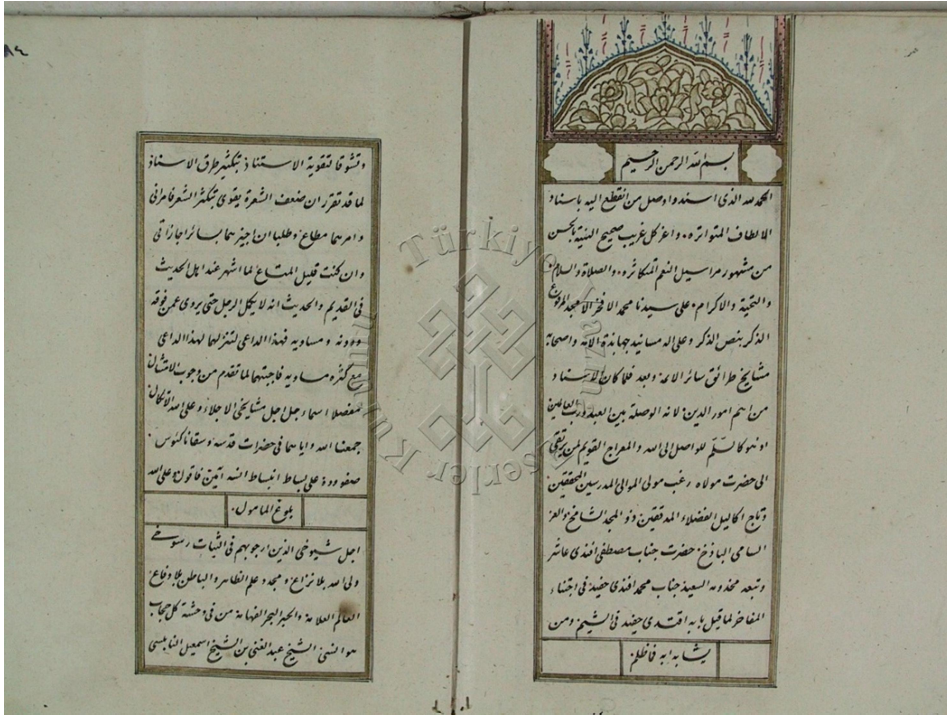 بسم الله الرحمن الرحيم
الحمد لله الذي اسند واوصل من انقطع اليه باسناد
الالطاف المتواتره، واعز كل غريب صحيح النية بالحسن
من مشهور مراسيل النعم المتكاثره، والصلاة والسلام،
والتحية والاكرام، على سيدنا محمد الافخر الامجد المرفوع
الذكر بنص الذكر وعلى اله مسانيد جهابذة الامة واصحابه
مشايخ طرائق سائر الائمة وبعد فلما كان الاسناد
من اهم امور الدين لانه الوصلة بين العبد ورب العالمين
اذ هو كالسلّم للواصل الى الله والمعراج القويم لمن يرتقي
الى حضرت مولاه رغب مولى الموالى المدرسين المحققين
وتاج اكاليل الفضلاء المدققين ذو المجد الشامخ والعز
السامى الباذخ حضرت جناب مصطفى افندى عاشر
وتبعه مخدومه السعيد جناب محمد افندى حفيد فى اجتناء
المفاخر لما قيل بابه اقتدى حفيد فى الشيم ومن
يشابه ابه فما ظلم
وتشوقا لتقوية الاستناد بتكثير طرق الاسناد
لما قد تقرر ان ضعف الشعرة يقوى بتكثر الشعر فامرانى
وامرهما مطاع وطلبا ان اجيزهما بسائر اجازاتى
وان كنت قليل المتاع لما اشهر عند اهل الحديث
فى القديم والحديث انه لا يكمل الرجل حتى يروى عمن فوقه
ودونه ومساويه فهذا الداعى لتنزلهما لهذا الداعى
مع كثره مساويه فاجبتهما لما تقدم من وجوب الامتثال
مفصلا اسماء رجل اجل مشايخى الاجلاء وعلى الله الاتكال
جمعنا الله واياهما فى حضرات قدسه وسقانا كئوس
صفو وده على بساط انبساط انسه آمين فاقول وعلى الله
بلوغ المامول.
اجل شيوخى الذين ارجو بهم فى الثبات رسوخى
ولى الله بلا نزاع ومجدد علم الظاهر والباطن بلا دفاع
العالم العلامة والحبر البحر الفهامة من فى وحشة كل حجاب
هو انسى الشيخ عبد الغنى بن الشيخ اسمعيل النابلسى
Türkiye Yazma Eserler Kurumu